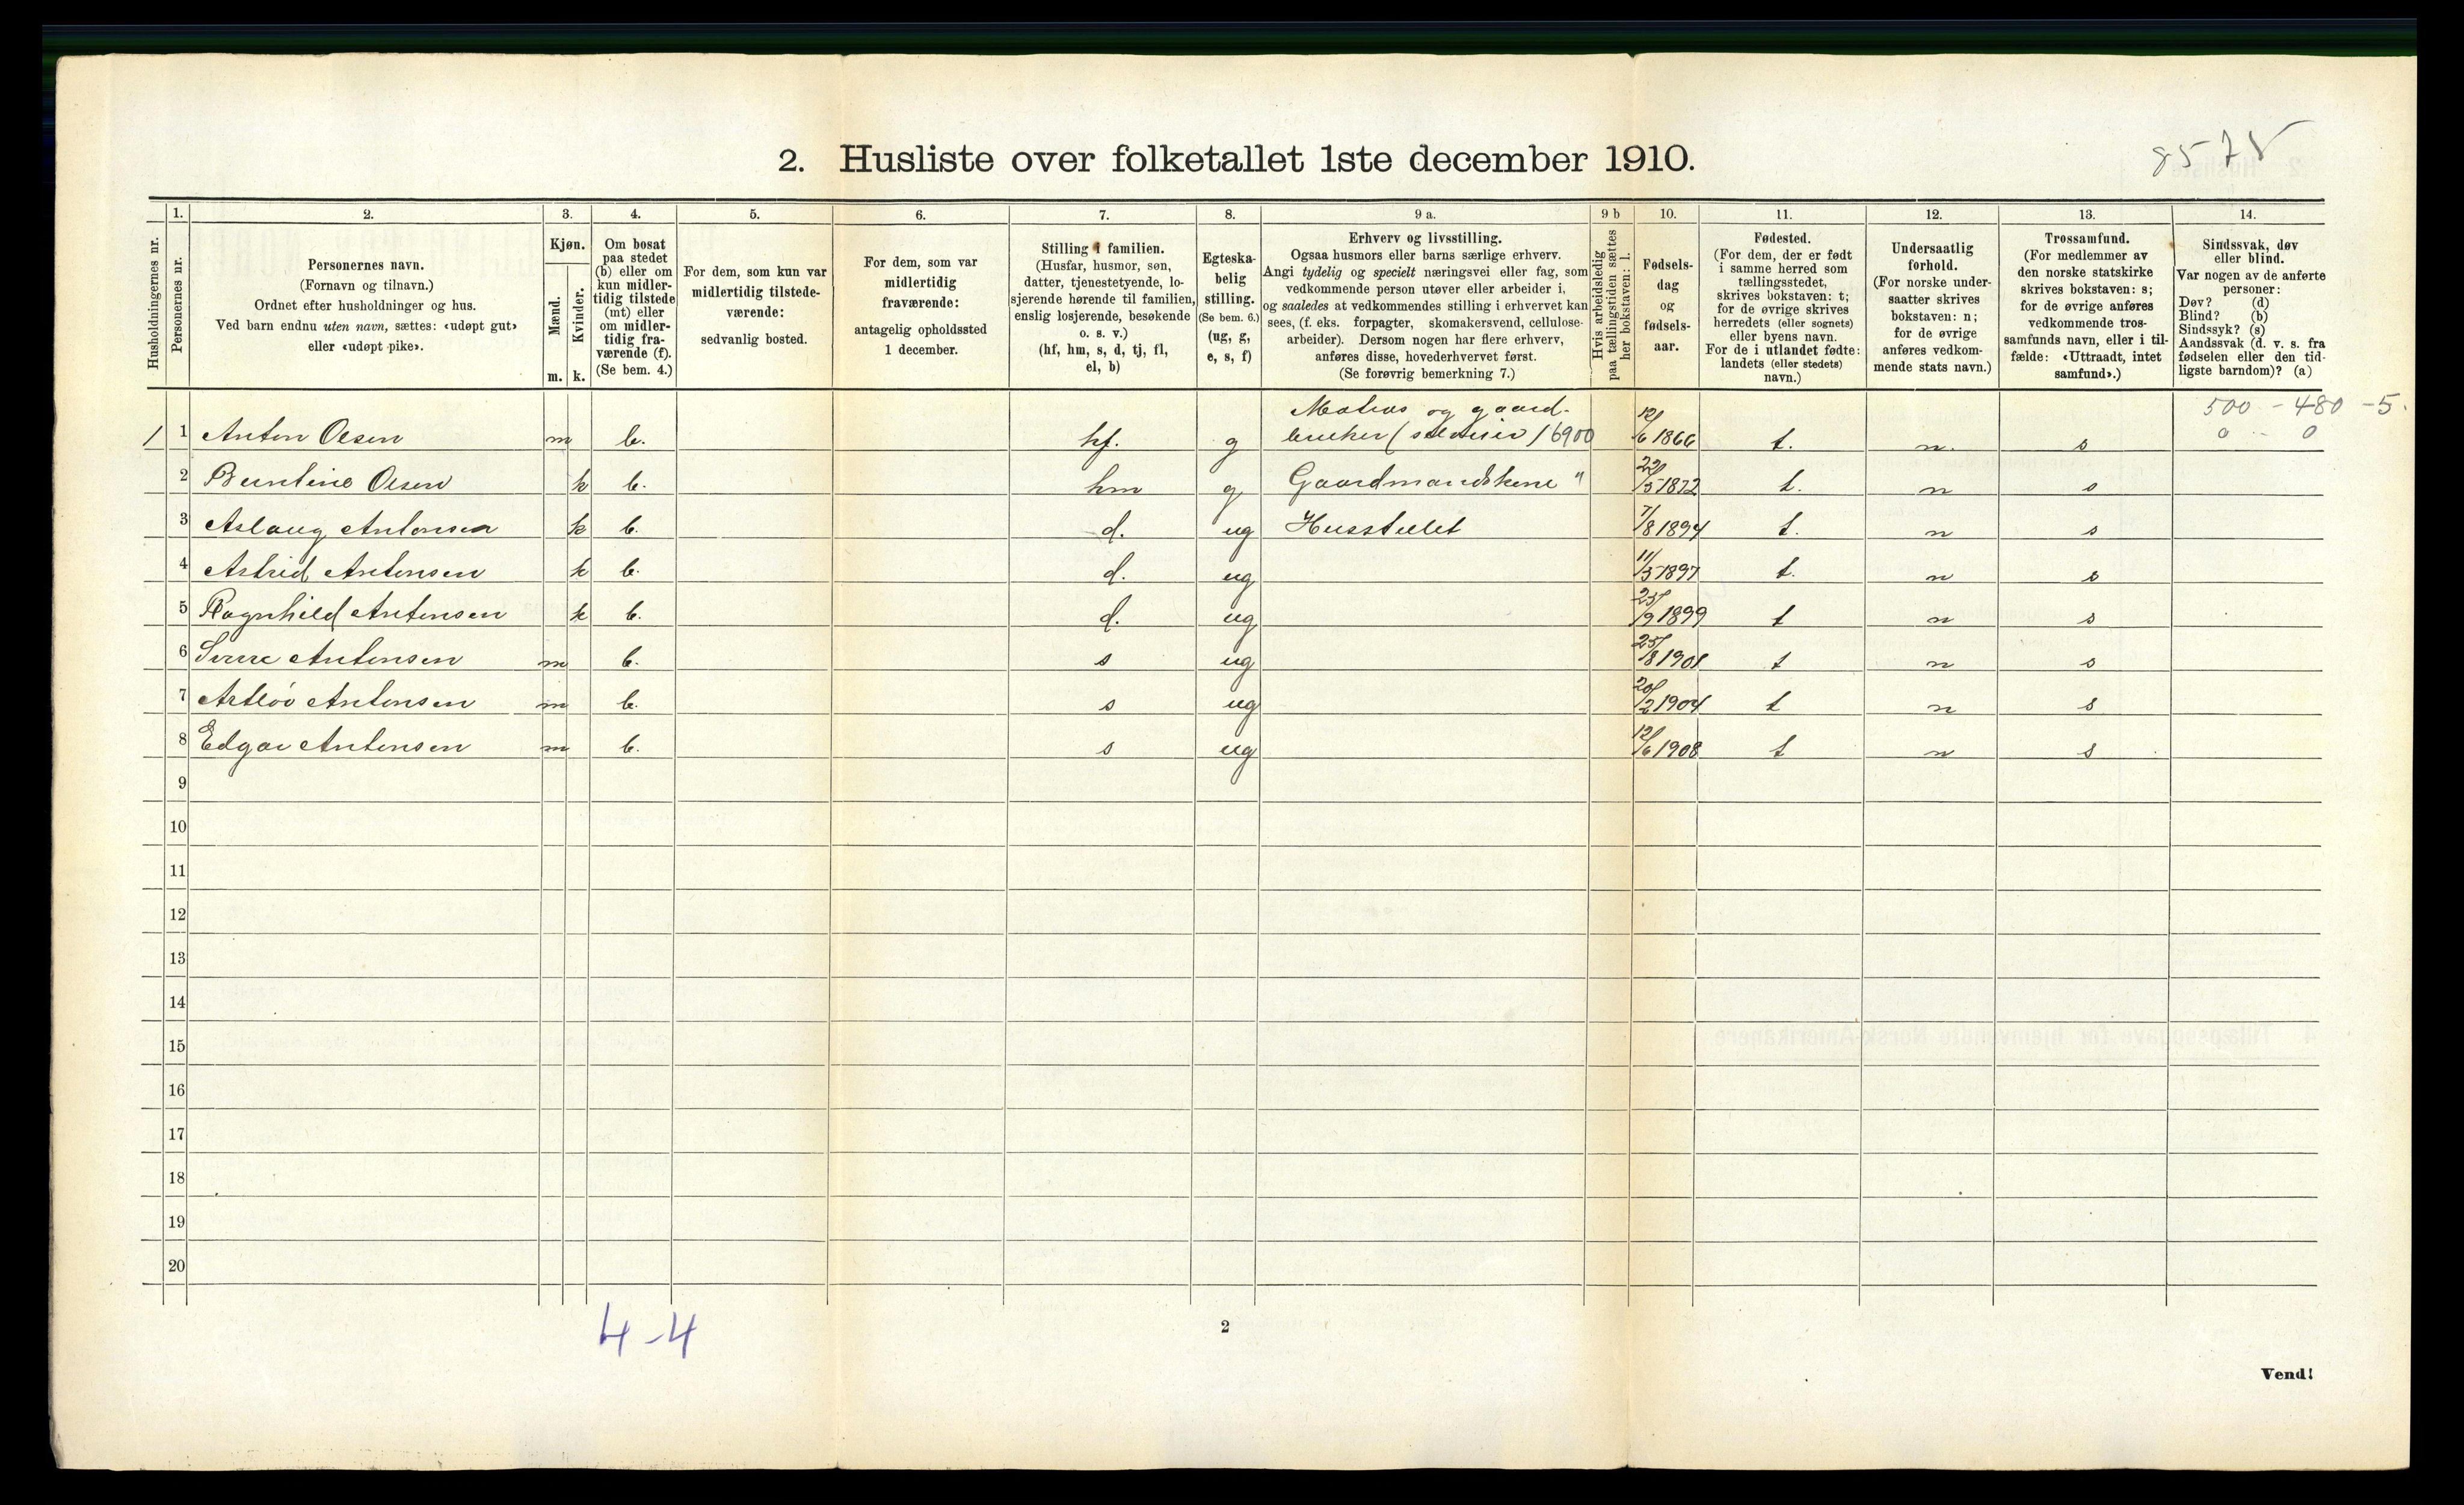 8578
2. Husliste over folketallet 1ste december 1910.
Husholdningernes nr.
1.
Personernes nr.
2.
Personernes navn.
(Fornavn og tilnavn.)
Ordnet efter husholdninger og hus.
Ved barn endnu uten navn, sættes: «udøpt gut»
eller «udøpt pike».
3.
Kjøn.
Mænd.
Kvinder.
m. k.
4.
Om bosat
paa stedet
(b) eller om
kun midler-
tidig tilstede
(mt) eller
om midler-
tidig fra-
værende (f).
(Se bem. 4.)
5.
For dem, som kun var
midlertidig tilstede-
værende:
sedvanlig bosted.
6.
For dem, som var
midlertidig
fraværende:
antagelig opholdssted
1 december.
7.
Stilling i familien.
(Husfar, husmor, søn,
datter, tjenestetyende, lo-
sjerende hørende til familien,
enslig losjerende, besøkende
o. s. v.)
(hf, hm, s, d, tj, fl,
el, b)
8.
Egteska-
belig
stilling.
(Se bem. 6.)
(ug, g,
e, s, f)
9 a.
Erhverv og livsstilling.
Ogsaa husmors eller barns særlige erhverv.
Angi tydelig og specielt næringsvei eller fag, som
vedkommende person utøver eller arbeider i,
og saaledes at vedkommendes stilling i erhvervet kan
sees, (f. eks. forpagter, skomakersvend, cellulose-
arbeider). Dersom nogen har flere erhverv,
anføres disse, hovederhvervet først.
(Se forøvrig bemerkning 7.)
9 b
Hvis arbeidsledig
paa tællingstiden sættes
her bokstaven: l.
10.
Fødsels-
dag
og
fødsels-
aar.
11.
Fødested.
(For dem, der er født
i samme herred som
tællingsstedet,
skrives bokstaven: t;
for de øvrige skrives
herredets (eller sognets)
eller byens navn.
For de i utlandet fødte:
landets (eller stedets)
navn.)
12.
Undersaatlig
forhold.
(For norske under-
saatter skrives
bokstaven: n;
for de øvrige
anføres vedkom-
mende stats navn.)
13.
Trossamfund.
(For medlemmer av
den norske statskirke
skrives bokstaven: s;
for de øvrige anføres
vedkommende tros-
samfunds navn, eller i til-
fælde: «Uttraadt, intet
samfund».)
14.
Sindssvak, døv
eller blind.
Var nogen av de anførte
personer:
Døv? (d)
Blind? (b)
Sindssyk? (s)
Aandssvak (d. v. s. fra
fødselen eller den tid-
ligste barndom)? (a)
Matros og gaard- 500 - 480 - 5.
1 1 Anton Olsen m b. hf. g bruker (selveier) 6900 12/6 1866 t. n. s 0 - 0
2 Berntine Olsen k b. hm g Gaardmandskone " 22/5 1872 t. n s
3 Aslaug Antonsen k b. d. ug Husstellet 7/8 1894 t. n s
4 Astrid Antonsen k b. d. ug 11/5 1897 t. n s
5 Ragnhild Antonsen k b. d. ug 25/9 1899 t n s
6 Sverre Antonsen m b. s ug 25/8 1901 t n s
7 Antonsen m b. s ug 20/2 1904 t n s
8 Edgar Antonsen m b. s ug 12/6 1908 t n s
9
10
11
12
13
14
15
16
17
18
19
20
4-4
2
Vend!